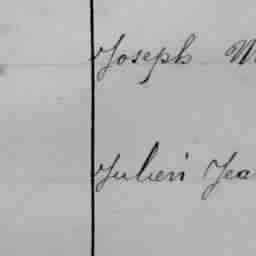 Joseph M
Julien Jea